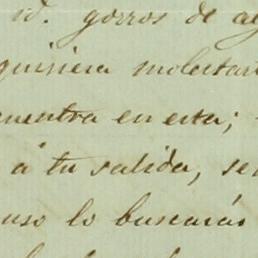 id. gorros de al
quisiera molestar
cuentra en esta;
á tu salida, se
uso lo buscarás